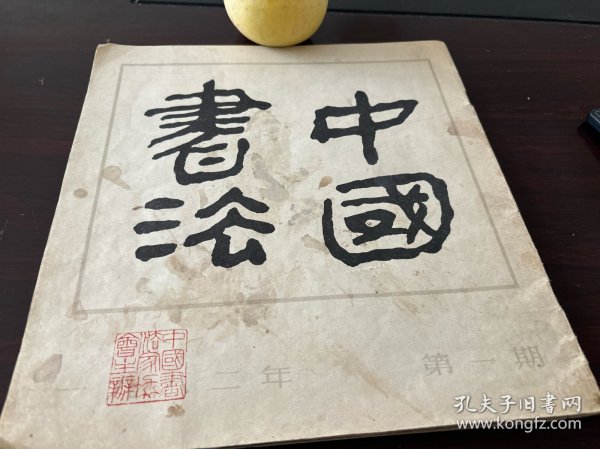 中國
書法
中國書
法家協
會主辦
二年 第一期
孔夫子旧书网
www.kongfz.com